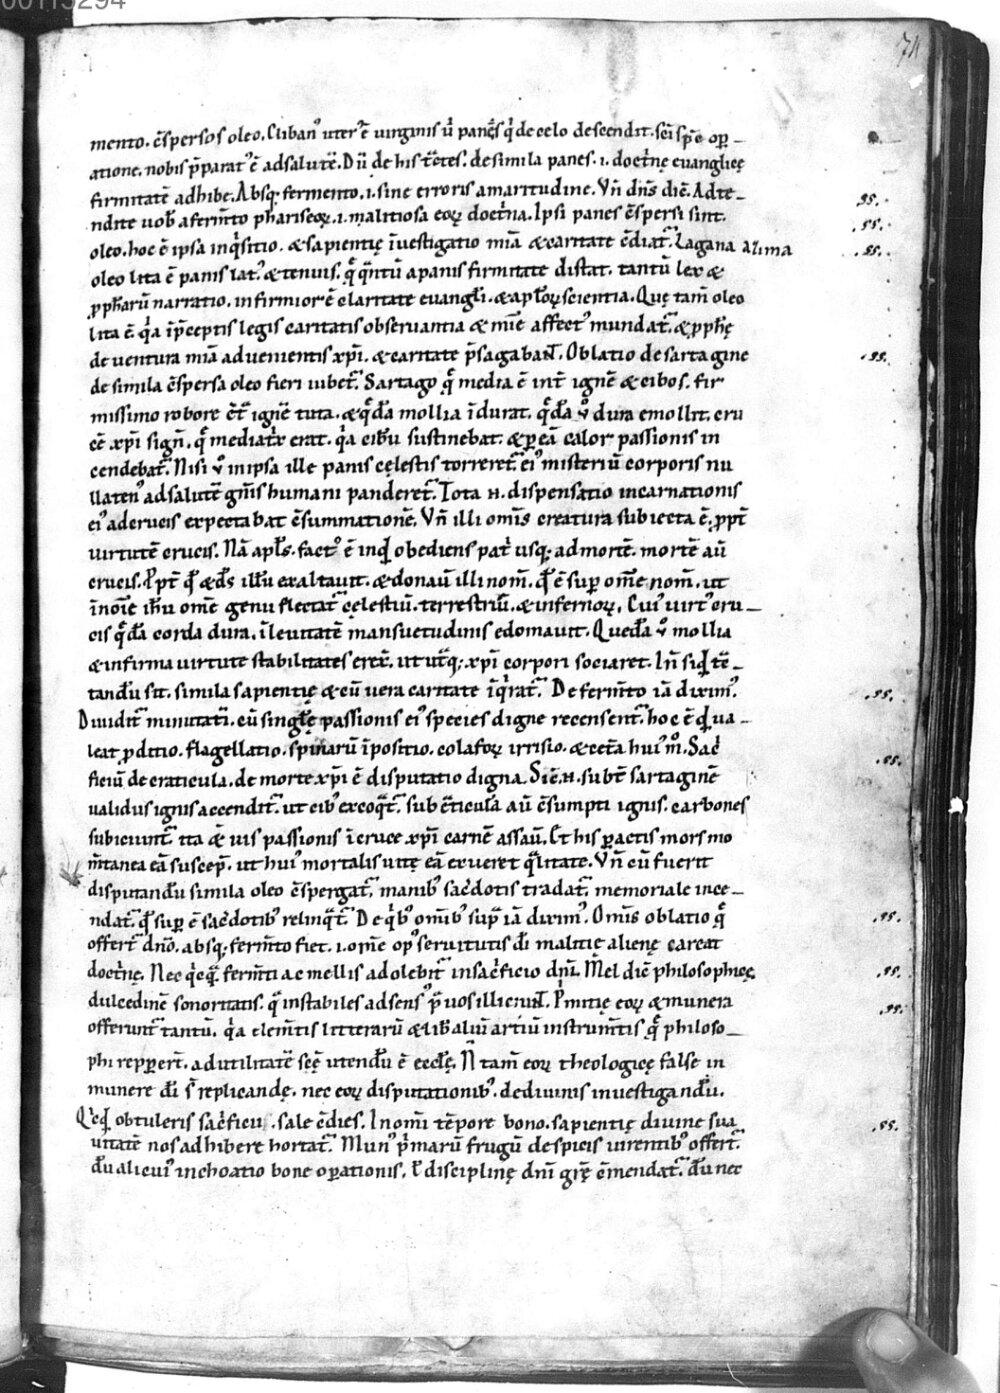 00113294
74
mento. ɔ̄spersos oleo. Clibanꝰ uterꝰ ē uirginis ū panē qͥ de celo descendit. sc̄i sp̄c oꝑ-
atione. nobis p̄paratꝰ ē ad salutē. Dū de his t̄c̄tes. de simila panes. i. doctͥnę euangłicę
firmitatē adhibe. Absq; fermento. i. sine erroris amaritudine. Vn̄ dn̄s dic̄. Adte-
ndite uob̄ a ferm̄to phariseoꝝ. i. malitiosa eoꝝ doctͥna. Ipsi panes ɔ̄spersi sint.
oleo. hoc ē ipsa inqͥsitio. & sapientię īuestigatio mīa & caritate ɔ̄diat̄. Lagana azima
oleo lita ē panis latꝰ. & tenuis. qͣ qͣntū a panis firmitate distat. tantū lex &
ꝓph̄arū narratio. infirmior ē claritate euangłi. & apłoꝝ scientia. Quę tam̄ oleo
lita ē. qͥa īp̄ceptis legis caritatis obseruantia & mīe affectꝰ mundat̄. & ꝓph̄ę
de uentura mīa aduenientis xp̄i. & caritate p̄sagabant. Oblatio de sartagine
de simila ɔ̄spersa oleo fieri iubet̄. Sartago qͣ media ē int̄ ignē & cibos. fir
missimo robore ɔ̄t̄ ignē tuta. & qͣdā mollia īdurat. qͣdā ꝟo dura emollit. cru
cē xp̄i sign̄. qͣ mediatͥx erat. qͥa cibū sustinebat. & ꝑ eā calor passionis in
cendebat̄. Nisi ꝟo in ipsa ille panis cęlestis torreret̄. eiꝰ misteriū corporis nu
llatenꝰ ad salutē gn̄is humani panderet̄. Tota n. dispensatio incarnationis
eiꝰ ad crucis expectabat ɔ̄summationē. Vn̄ illi om̄is creatura subiecta ē. ꝓpt̄
uirtutē crucis. Nā apłs. factꝰ ē inqͥd obediens patͥ usq; ad mortē. mortē aū
crucis. Ꝓpt̄ qͣ & d̄s illū exaltauit. & donau̅ illi nom̄. qͣ ē suꝑ om̄e nom̄. ut
īnoīe ih̄u om̄e genu flectat̄ cęlestiū. terrestriū. & infernoꝝ. Cuiꝰ uirtꝰ cru-
cis qͣdā corda dura. īleuitatē mansuetudinis edomauit. Quedā ꝟo mollia
& infirma uirtute stabilitates erex̄. ut utͣq; xp̄i corpori sociaret. In̄ siqͥd tē-
tandū sit. simila sapientię & cū uera caritate īqͥrat̄. De ferm̄to iā diximꝰ.
Diuidit̄ minutati. cū singłę passionis eiꝰ species digne recensent̄. hoc ē qͥd ua-
leat ꝓditio. flagellatio. spinarū īpositio. colafoꝝ irrisio. & cet̄a huiꝰm̊. Sac̄
ficiū de craticula. de morte xp̄i ē disputatio digna. Sic̄. n. subt̄ sartaginē
ualidus ignis accendit̄. ut cibꝰ excoqͣt̄. sub c̄ticula aū ɔ̄sumpti ignis. carbones
subiciunt̄. ita & uis passionis ī cruce xp̄i carnē assau̅. Et his ꝑactis mors mo
m̄tanea eā suscep̄. ut huiꝰ mortalis uitę eā exueret qͣlitate. Vn̄ cū fuerit
disputandū simila oleo ɔ̄spergat̄. manibꝰ sac̄dotis tradat̄. memoriale ince-
ndat̄. qͣ suꝑ ē sac̄dotibꝰ relinqͣt̄. De qͥbꝰ om̄ibꝰ supͣ iā diximꝰ. Om̄is oblatio qͣ
offert̄ dn̄o. absq; ferm̄to fiet. i. om̄e opꝰ seruitutis dī malitię alienę careat
doctͥnę. Nec qͥcqͣ. ferm̄ti ac mellis adolebit̄ in sac̄ficio dn̄i. Mel dic̄ philosophicę
dulcedinē sonoritatis. qͣ instabiles ad sensꝰ p̄uos illiciunt. Pͥmitię eoꝝ & munera
offerunt̄ tantū. qͥa elem̄tis litterarū & lib̄aliū artiū instrum̄tis qͣ philoso-
phi repꝑert̄. ad utilitatē sc̄ę utendū ē eccłę. N̄ tam̄ eoꝝ theologicę false in
munere dī s̄ replicandę. nec eoꝝ disputationibꝰ. de diuinis inuestigandū.
Qͥcqͥd obtuleris sac̄ficii. sale ɔ̄dies. I nom̄i tēpore bono. sapientię diuine sua
uitatē nos adhibere hortat̄. Munꝰ pͥmarū frugū de spicis uirentibꝰ offert̄.
dū alicuiꝰ inchoatio bone oꝑationis. ł disciplinę dn̄i grę ēmendat̄. dū nec